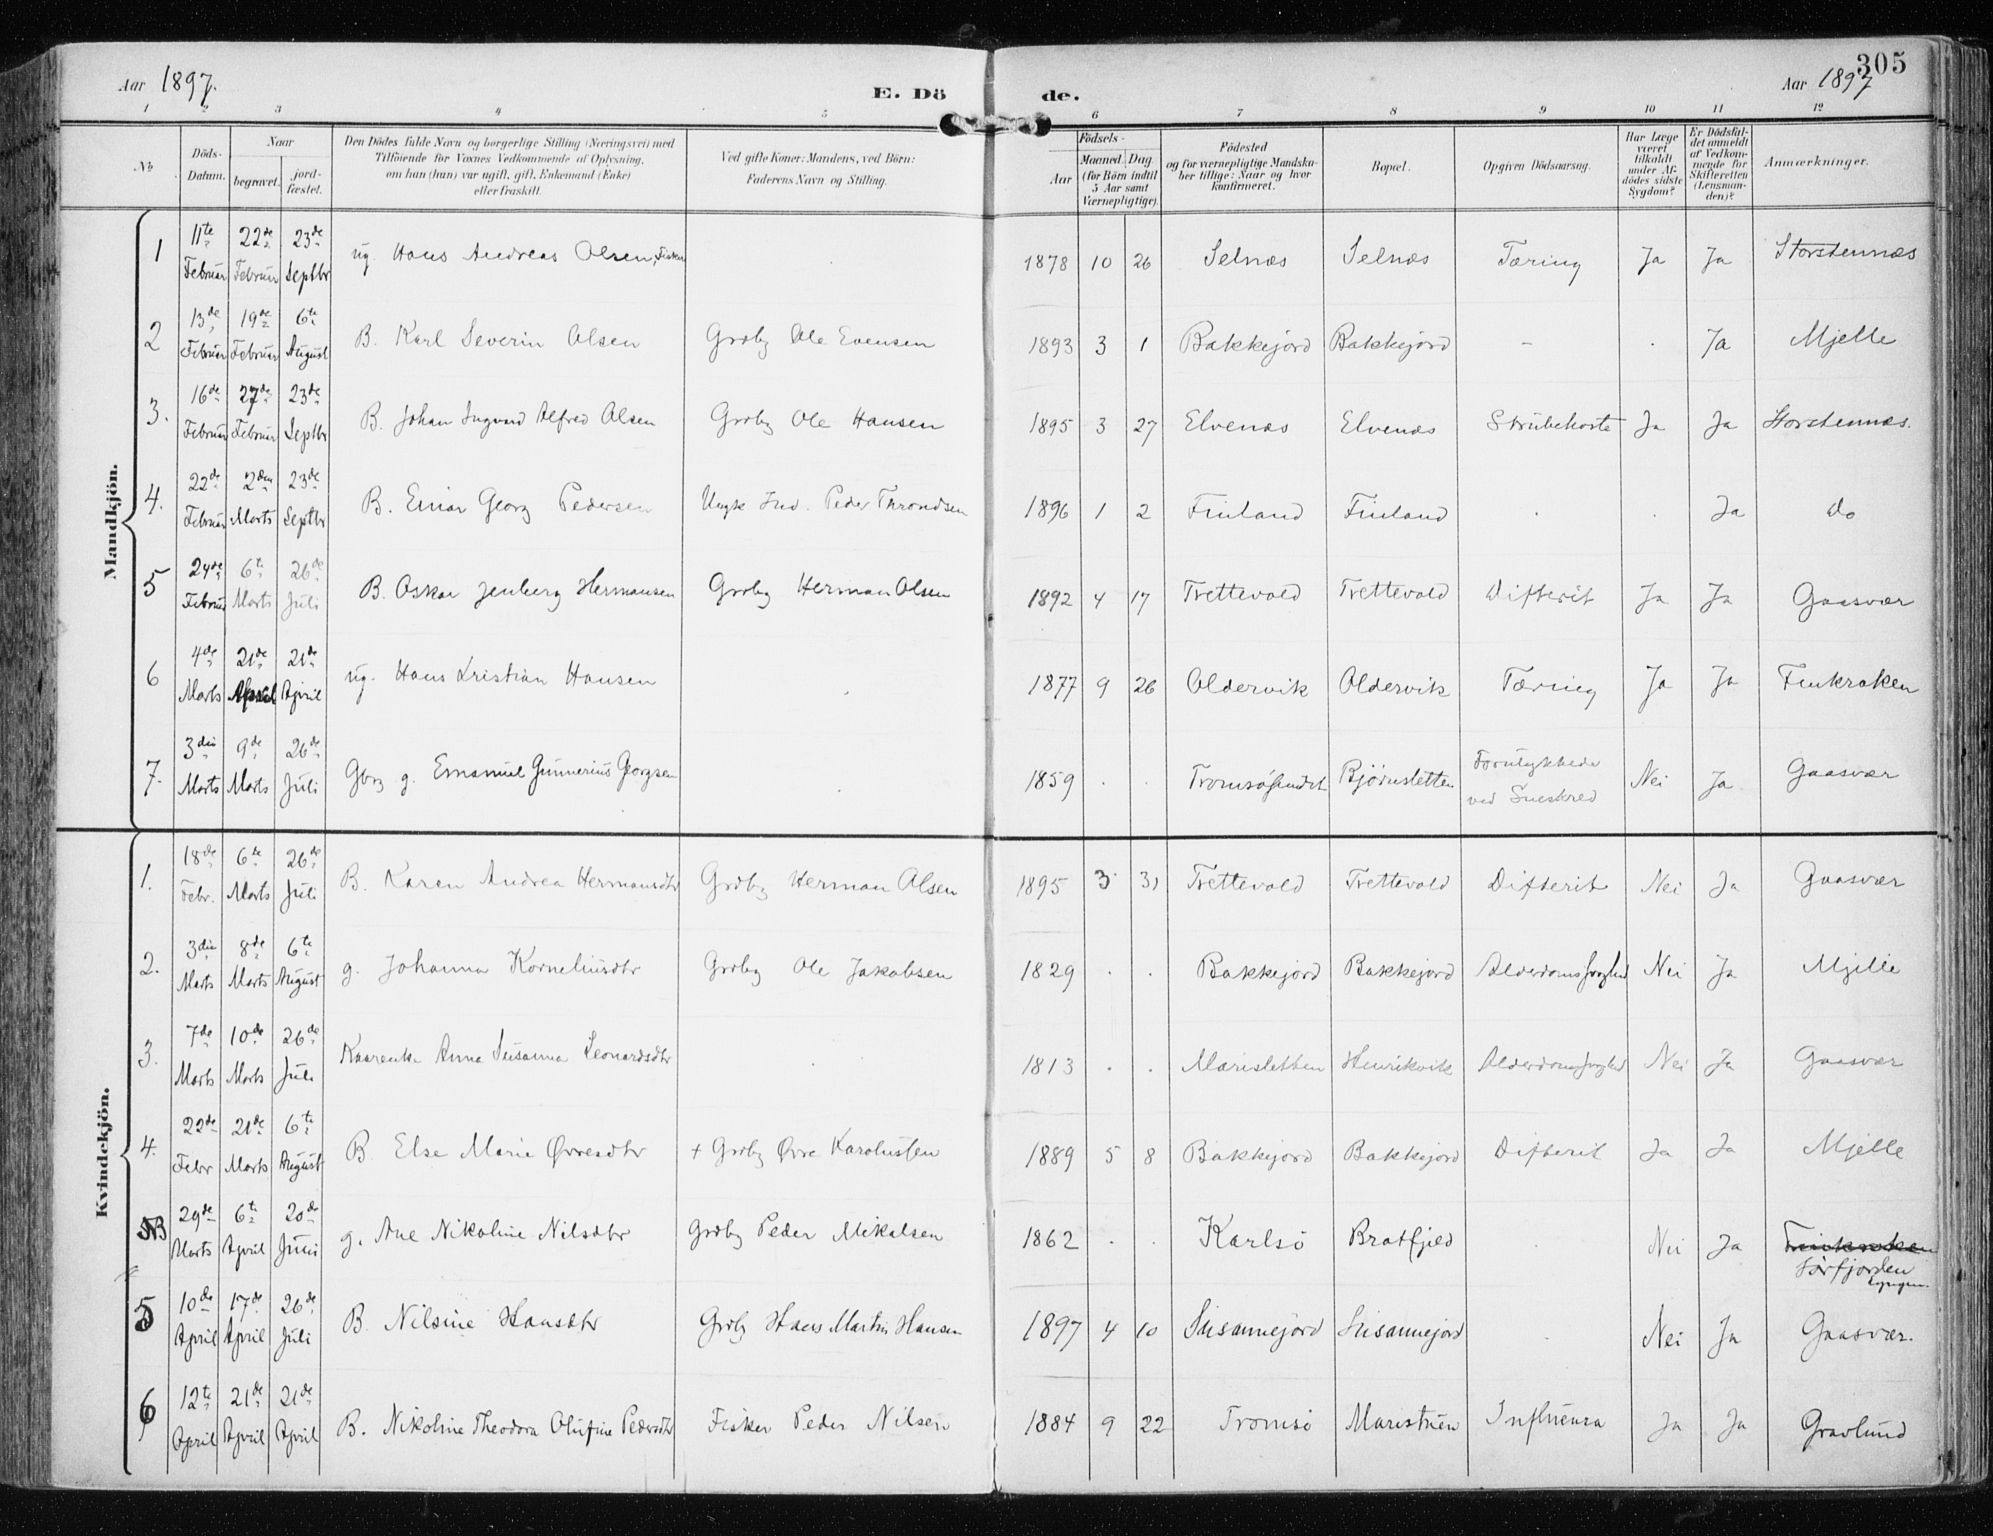 305
Aar 1897.
E. Dö
de.
Aar 1897
1 2 3 4 5 6 7 8 9 10 11 12
No.
Döds-Datum.
Naar
begravet.
jordfæstet.
Den Dödes fulde Navn og borgerlige Stilling (Næringsvei) med
Tilföiende for Voxnes Vedkommende af Oplysning,
om han (hun) var ugift, gift, Enkemand (Enke)
eller fraskilt.
Ved gifte Koner: Mandens, ved Börn:
Faderens Navn og Stilling.
Födsels-
Aar
Maaned. Dag
(for Börn indtil
5 Aar samt
Værnepligtige).
Födested
og for værnepligtige Mandskaber tillige: Naar og hvor
konfirmeret.
Bopæl.
Opgiven Dödsaarsag.
Har Læge
været
tilkaldt
under Afdödes sidste
Sygdom?
Er Dödsfaldet anmeldt
af Vedkommende for
Skifteretten
(Lensmanden)?
Anmærkninger.
Mandkjön.
1 11te Februar 22de Februar 23de Septbr ug. Hans Andreas Olsen, Fisker 1878 10 26 Selnæs Selnæs Tæring Ja Ja Storstennæs
2 13de Februar 19de Februar 6te August B. Karl Severin Olsen Grdbg Ole Evensen 1893 3 1 Bakkejord Bakkejord - . Ja Mjelle
3. 16de Februar 27de Februar 23de Septbr B. Johan Ingvard Alfred Olsen Grdbg Ole Hansen 1895 3 27 Elvenæs Elvenæs Strubehoste Ja Ja Storstennæs.
4. 22de Februar 2den Marts 23de Septbr B. Einar Georg Pedersen Ungk Ind. Peder Throndsen 1896 1 2 Finland Finland . . Ja Do
5 24de Februar 6te Marts 26de Juli B. Oskar Jenberg Hermansen Grdbg Herman Olsen 1892 4 17 Trettevold Trettevold Difterit Ja Ja Gaasvær
6 4de Marts 21de April 21de April ug. Hans Kristian Hansen . 1877 9 26 Oldervik Oldervik Tæring Ja Ja Finkroken
7. 3die Marts 9de Marts 26de Juli Gbrg g. Emanuel Gunnerius Georgsen . 1859 . . Tromsøsundet Bjørnsletten Forulykkede ved Sneskred Nei Ja Gaasvær
Kvindekjön.
1. 18de Febr. 6te Marts 26de Juli B. Karen Andrea Hermansdtr Grdbg Herman Olsen 1895 3 31 Trettevold Trettevold Difterit Nei Ja Gaasvær
2. 3die Marts 8de Marts 6te August g. Johanna Korneliusdtr Grdbg Ole Jakobsen 1829 . . Bakkejord Bakkejord Alderdomssvaghed Nei Ja Mjelle
3. 7de Marts 10de Marts 26de Juli Kaarenke Anna Susanna Leonardsdtr . 1813 . . Marisletten Henrikvik Alderdomssvaghed Nei Ja Gaasvær
4. 22de Febr 21de Marts 6te August B. Else Marie Øvresdtr + Grdbg Øvre Karolussen 1889 5 8 Bakkejord Bakkejord Difterit Ja Ja Mjelle
NB 29de Marts 6te April 20de Juni g. Ane Nikoline Nilsdtr Grdbg Peder Mikalsen 1862 . . Karlsö Bratfjeld . Nei Ja Finkroken
Sørfjorden
Lyngen
5 10de April 17de April 26de Juli B. Nilsine Hansdtr Grdbg Hans Martin Hansen 1897 4 10 Susannejord Susannejord . Nei Ja Gaasvær.
6 12te April 21de April 21de April B. Nikoline Theodora Olufine Pedersdtr Fisker Peder Nilsen 1884 9 22 Tromsö Maristuen Influensa Ja Ja Gravlund